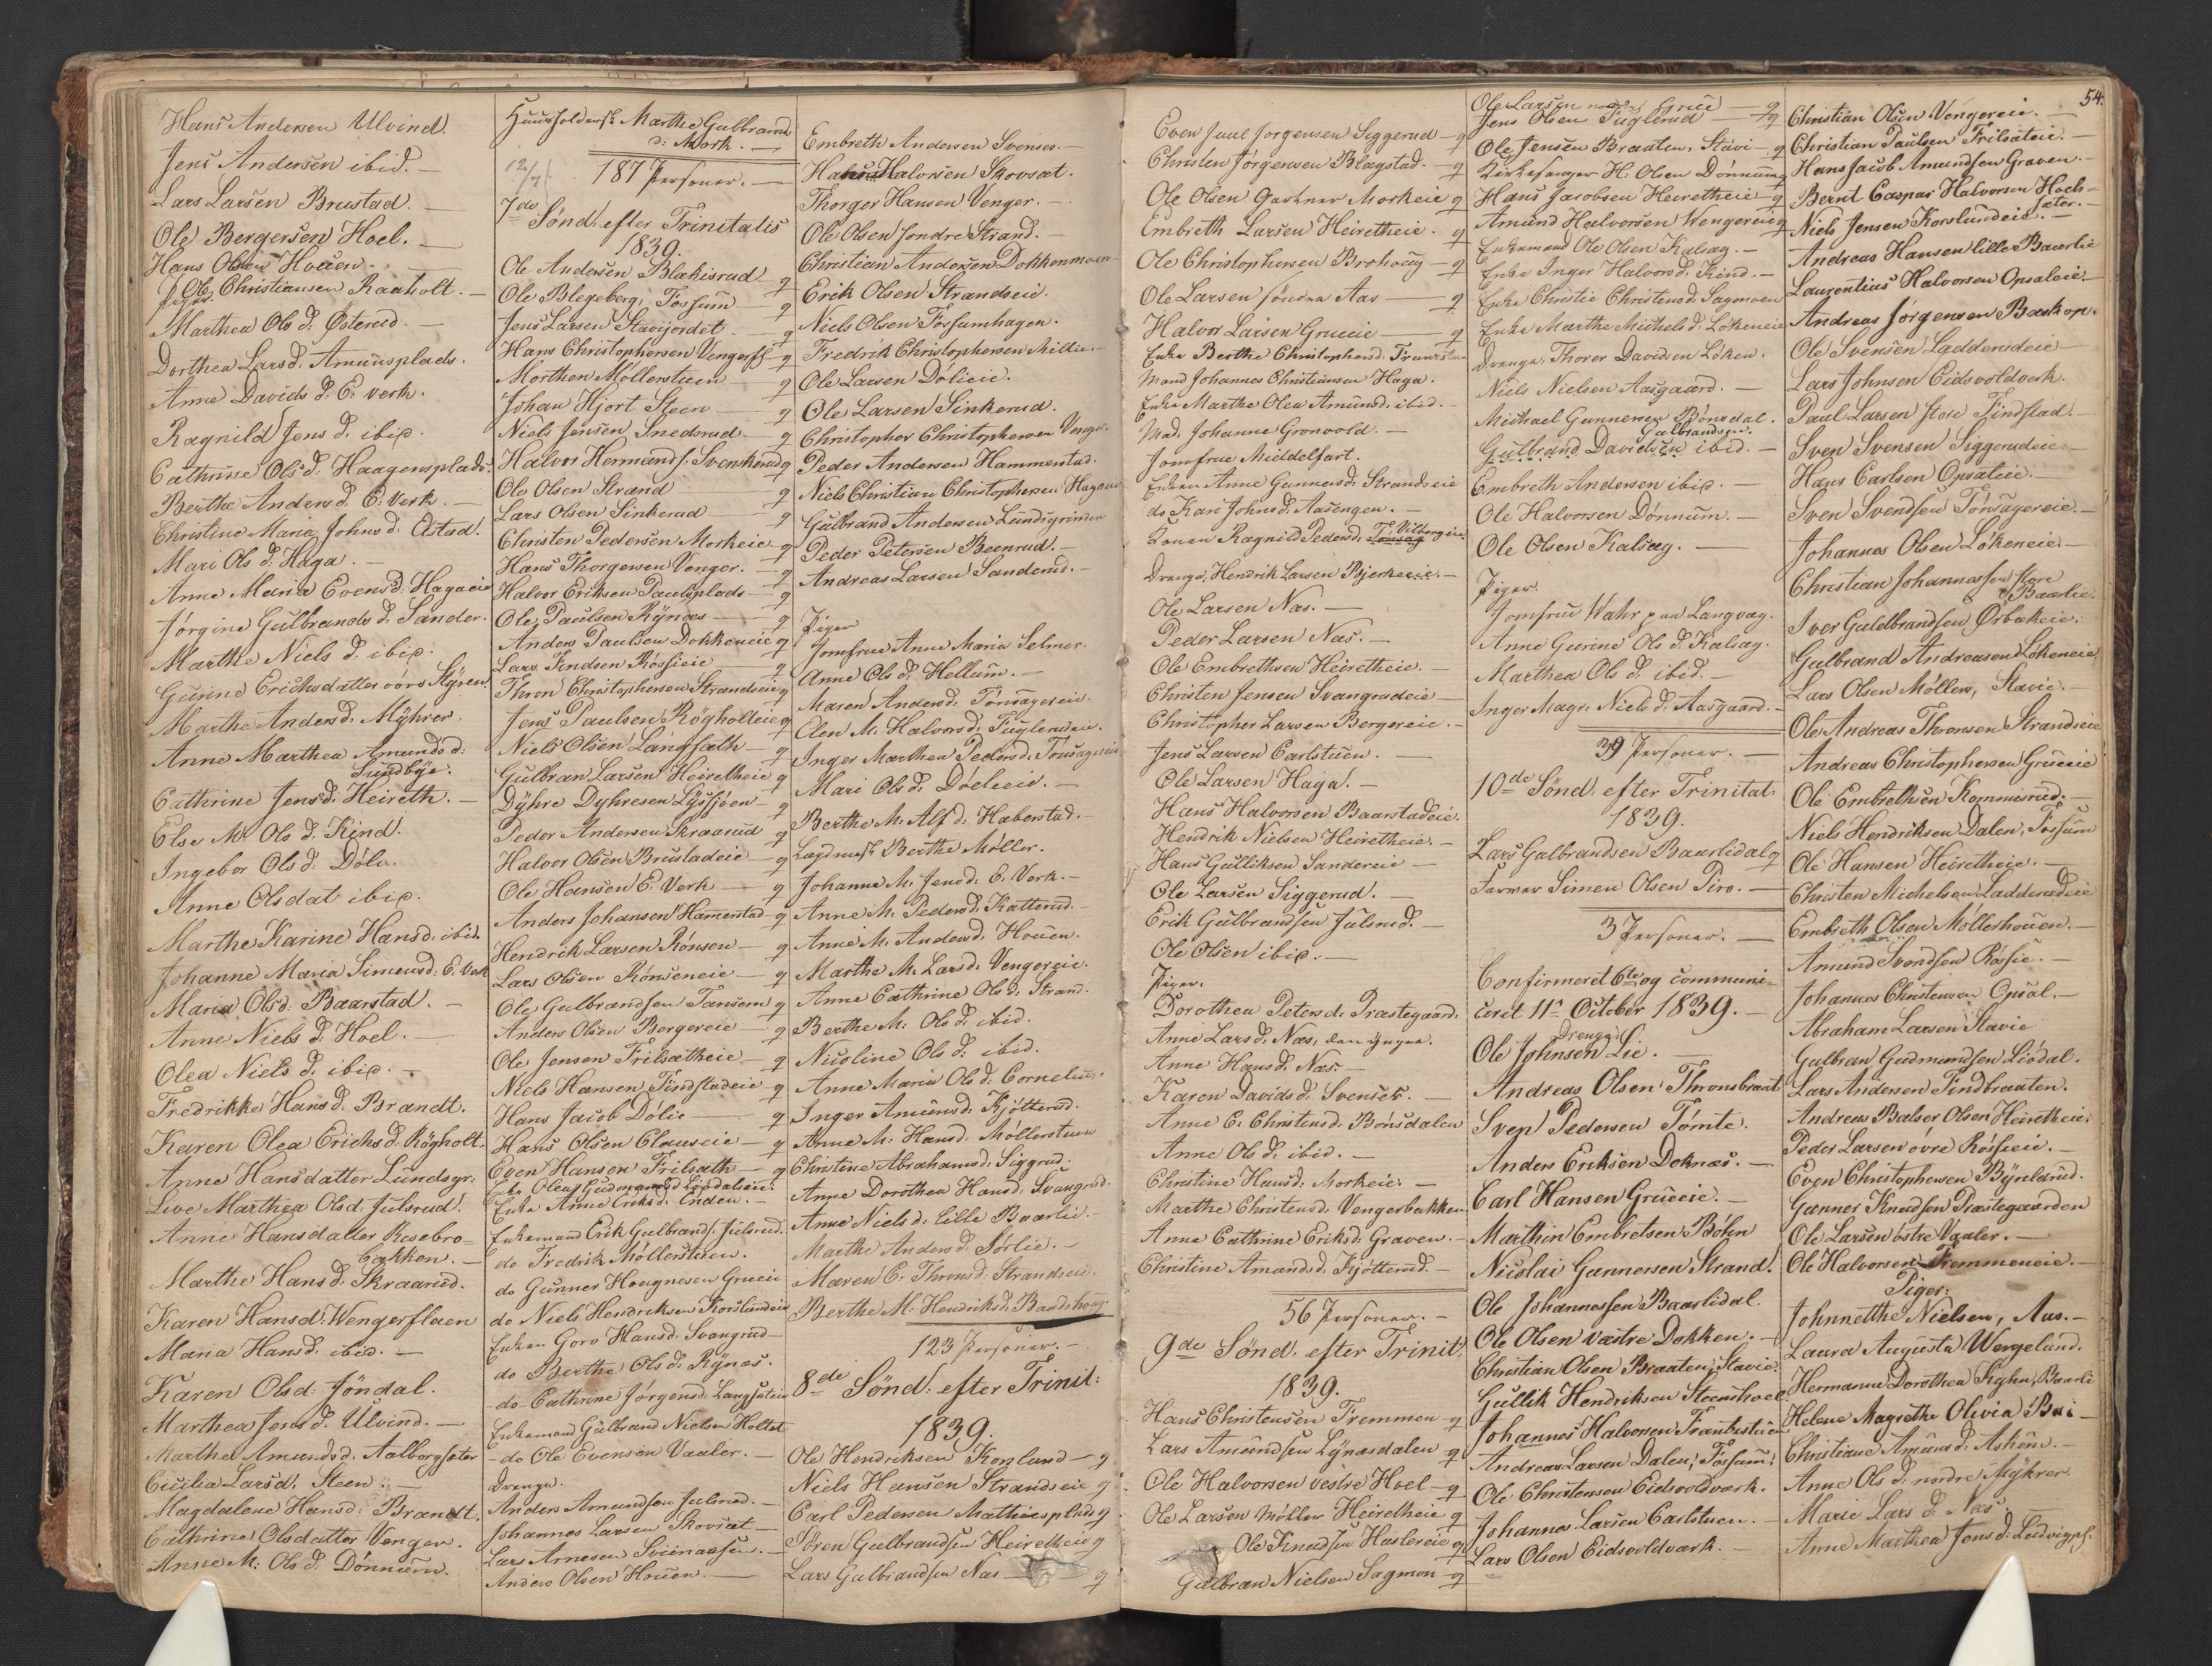 Hans Andersen Ulvind.
Jens Andersen ibid. —
Lars Larsen Brustad. —
Ole Bergersen Hoel. —
Hans Olsen Houen. —
Ole Christiansen Raaholt. —
Piger.
Marthea Ols d. Østerud. —
Dorthea Lars d. Amunsplads.
Anne Davids d. E. verk.
Ragnild Jens d. ibid.
Cathrine Ols d. Haagensplads.
Berthe Anders d. E. Verk. —
Christine Maria Johns d. Elstad.
Mari Ols d. Haga. —
Anne Maria Evens d. Hagaeie
Jørgine Gulbrands d. Sander.
Marthe Niels d. ibid.
Gurine Erichsdatter
Marthe Anders d. Myhrer.
Anne Marthea Amunds d.
Sundbye.
Cathrine Jens d. Heireth. —
Else M. Ols d. Kind.
Ingebor Ols d. Døln.
Anne Olsdat ibid.
Marthe Karine Hans d. ibid.
Johanne Maria Simens d. E. Verk
Maria Ols d. Baarstad. —
Anne Niels d. Hoel. —
Olea Niels d. ibid. —
Fredrikke Hans d. Brandt.
Karen Olea Erichs d. Røgholt.
Anne Hansdatter Lundsgr:
Live Marthea Ols d. Julsrud.
Anne Hansdatter Rosebro=
bakken. —
Marthe Hans d. Skraarud.
Karen Hans d. Wengerflaen
Maria Hans d. ibid. —
Karen Ols d. Jøndal.
Marthea Jens d. Ulvind. —
Marthea Amunds d. Aalborgsæter
Cicilia Lars d. Steen. —
Magdalene Hans d. Brandt.
Cathrine Olsdatter Venger.
Anne M. Ols d. Dønnum.
Huusholdersk. Marthe Gulbrand
d. Mork. —
12/7 187 Personer. —
7de Sønd. efter Trinitatis
1839.
Ole Andersen Blakisrud — g
Ole Blegeberg, Fossum — g
Jens Larsen Stavijordet — g
Hans Christophersen Vengerfl. g
Morthen Møllerstuen — g
Johan Hjort Steen — g
Niels Jensen Snedsrud — g
Halvor Hermands. Svenskerud g
Ole Olsen Strand — g
Lars Olsen Sinkerud — g
Christen Pedersen Morkeie g
Hans Thorgersen Venger. — g
Halvor Eriksen Paulsplads — g
Ole Paulsen Rynæs — g
Anders Paulsen Dokkeneie g
Lars Findsen Røssieie — g
Thron Christophersen Strandseie g
Jens Paulsen Røgholteie g
Niels Olsen Langsæth — g
Gulbran Larsen Heiretheie g
Dyhre Dyhresen Lyssjøen — g
Peder Andersen Skraarud — g
Halvor Olsen Brustadeie — g
Ole Hansen E. Verk — g
Anders Johansen Hamerstad — g
Hendrik Larsen Rønsen — g
Lars Olsen Rønseneie — g
Ole Gulbrandsen Tansem g
Anders Olsen Bergereie — g
Ole Jensen Frilsætheie — g
Niels Hansen Findstadeie g
Hans Jacob Dølie — g
Hans Olsen Clauseie — g
Even Hansen Frilsæth — g
Enke Olea Gudmands d Liødalseie.
Enke Anne Eriks d. Enden. —
Enkemand Erik Gulbrands. Julsrud.
do Fredrik Møllerstuen.
do Gunner Hougnesen Grueeie
do Niels Hendriksen Korslundeie
Enken Goro Hans d. Svangrud —
do Berthe Ols d. Rynæs.
do Cathrine Jørgens d. Langsæteie
Enkemand Gulbrand Nielsen Holtet
do Ole Evensen Vaaler. —
Drenge.
Anders Amundsen Julsrud. —
Johannes Larsen Skovsæt —
Lars Arnesen Sviinaasen. —
Anders Olsen Houen. —
Embreth Andersen Svenser. —
Hans Halvorsen Skovsæt. —
Thorger Hansen Venger. —
Ole Olsen søndre Strand. —
Christian Andersen Dokkenmoen
Erik Olsen Strandseie.
Niels Olsen Fossumhagen.
Fredrik Christophersen Millie. —
Ole Larsen Dølieie.
Ole Larsen Sinkerud.
Christopher Christophersen Venger.
Peder Andersen Hammerstad.
Niels Christian Christophersen Hagaeie
Gulbrand Andersen Lundsgrinden
Peder Petersen Beenrud. —
Andreas Larsen Sanderud. —
Piger
Jomfrue Anne Maria Selmer.
Anne Ols d. Hellum. —
Maren Anders d. Tønsagereie.
Elen M. Halvors d. Fuglerudeie.
Inger Marthea Peders d. Tønsagereie
Mari Ols d. Døelieie. —
Berthe M. Alf d. Haberstad. —
Lægdmsk. Berthe Møller.
Johanne M. Jens d. E. Verk. —
Anne M. Peders d. Katterud. —
Anne M. Anders d. Houen.
Marthe M. Lars d. Vengereie.
Anne Cathrine Ols d. Strand.
Berthe M. Ols d. ibid.
Nicoline Ols d. ibid.
Anne Maria Ols d. Cornelius
Inger Amunds d. Kjøtterud.
Anne M. Hans d. Møllerstuen
Christine Abrahams d. Siggrud.
Anne Dorothea Hans d. Svangrud.
Anne Niels d. lille Baarlie. —
Marthe Anders d. Sørlie. —
Maren C. Throns d. Strandseie.
Berthe M. Hendriks d. Baadshoug.
123 Personer. —
8de Sønd. efter Trinit:
1839.
Ole Hendriksen Korslund — g
Niels Hansen Strandseie g
Carl Pedersen Mathiesplads g
Søren Gulbrandsen Heiretheie g
Lars Gulbrandsen Næs — g
54.
Even Juul Jørgensen Siggerud — g
Christen Jørgensen Blagstad. — g
Ole Olsen Gartner Morkeie g
Embreth Larsen Heiretheie. g
Ole Christophersen Brohoug — g
Ole Larsen søndre Aas — g
Halvor Larsen Grueeie — g
Enke Berthe Christophers d.
Mand Johannes Christiansen Haga.
Enke Marthe Olea Amunds d. ibid. —
Mad. Johanne Grønvold. —
Jomfrue Middelfart.
Enken Anne Gunners d. Strandseie
do Kari Johns d. Aasengen. —
Konen Ragnild Peders d. Vilbergeie.
Drenge, Hendrik Larsen Bjerkeeie. —
Ole Larsen Næs. —
Peder Larsen Næs. —
Ole Embrethsen Heiretheie. —
Christen Jensen Svangrudeie —
Christopher Larsen Bergereie. —
Jens Larsen Carlstuen. —
Ole Larsen Haga. —
Hans Halvorsen Baarstadeie.
Hendrik Nielsen Heiretheie. —
Hans Gulliksen Sandereie —
Ole Larsen Siggerud. —
Erik Gulbrandsen Julsrud. —
Ole Olsen ibid. —
Piger.
Dorothea Peters d. Præstegaard.
Anne Lars d. Næs, den yngre.
Anne Hans d. Næs. —
Karen Davids d. Svenser. —
Anne C. Christens d. Bønsdalen
Anne Ols d. ibid. —
Christine Hans d. Morkeie. —
Marthe Christens d. Vengerbakken.
Anne Cathrine Eriks d. Graven. —
Christine Amunds d. Kjøtterud. —
56 Personer. —
9de Sønd. efter Trinit.
1839.
Hans Christensen Fremmen — g
Lars Amundsen Lynæsdalen g
Ole Halvorsen vestre Hoel — g
Ole Larsen Møller Heiretheie g
Ole Knudsen Haslereie g
Gulbran Nielsen Sagmon — g
Ole Larsen nordre Grue — g
Jens Olsen Fuglerud — g
Ole Jensen Braaten, Stavi — g
Kirkesanger H. Olsen Dønnum g
Hans Jacobsen Heiretheie g
Amund Halvorsen Wengereie g
Enkemand Ole Olsen Kalsæg. —
Enke Inger Halvors d. Kind. —
Enke Christie Christens d. Sagmoen
Enke Marthe Michels d. Løkeneie
Drenge, Thorer Davidsen Løken.
Niels Nielsen Aasgaard. —
Michael Gunnersen Bønsdal.
Gulbrandsen.
Gulbrand Davidsen ibid. —
Embreth Andersen ibid. —
Ole Halvorsen Dønnum. —
Ole Olsen Kalsæg. —
Piger.
Jomfrue Wahr paa Langvag.
Anne Gurine Ols d. Kalsæg.
Marthea Ols d. ibid. —
Inger Magr. Niels d. Aasgaard. —
39 Personer. —
10de Sønd. efter Trinitat:
1839.
Lars Gulbrandsen Baarlidal g
Farver Simen Olsen Piro. —
3 Personer. —
Confirmeret 6te og communi=
ceret 11te October 1839. —
Drenge.
Ole Johnsen Lie. —
Andreas Olsen Thronsbraat.
Sven Pedersen Tømte.
Anders Eriksen Doknæs. —
Carl Hansen Grueeie. —
Marthin Embretsen Bøhn
Nicolai Gunnersen Strand.
Ole Johannessen Baarlidal.
Ole Olsen væstre Dokken. —
Christian Olsen Braaten, Stavie.
Gullik Hendriksen Steenshoel
Johannes Halvorsen Trantestuen
Andreas Larsen Dalen, Fossum.
Ole Christensen Eidsvoldværk.
Johannes Larsen Carlstuen. —
Lars Olsen Eidsvoldværk. —
Christian Olsen Vengereie. —
Christian Paulsen Frilsæteie. —
Hans Jacob Amundsen Graven. —
Bernt Caspar Halvorsen Hoels=
sæter. —
Niels Jensen Korslundeie. —
Andreas Hansen lille Baarlie
Laurentius Halvorsen Opsaleie.
Andreas Jørgensen Baskop.
Ole Svensen Ladderudeie —
Lars Johnsen Eidsvoldværk.
Paul Larsen store Findstad. —
Sven Svensen Siggerudeie —
Hans Carlsen Opsaleie. —
Sven Svendsen Tønsagereie. —
Johannes Olsen Løkeneie —
Christian Johannessen store
Baarlie.
Iver Guldbrandsen Ørbækeie.
Gulbrand Andreasen Løkeneie
Lars Olsen Møllers, Stavie. —
Ole Andreas Thronsen Strandseie
Andreas Christophersen Grueeie
Ole Embrethsen Kommisrud. —
Niels Hendriksen Dalen, Fossum
Ole Hansen Heiretheie. —
Christen Michelsen Ladderudeie
Embreth Olsen Møllerhouen. —
Amund Svendsen Røsie. —
Johannes Christensen Opsal. —
Abraham Larsen Stavie
Gulbran Gudmundsen Liødal.
Lars Andersen Findbraaten.
Andreas Balser Olsen Heiretheie.
Peder Larsen øvre Røssieie. —
Even Christophersen Bynildrud.
Gunner Knudsen Præstegaarden
Ole Larsen østre Vaaler. —
Ole Halvorsen Fremmeneie. —
Piger:
Johnnetthe Nielsen, Aas. —
Laura Augusta Wergeland.
Hermanne Dorothea Kyhn, Baarli
Helene Magrethe Olivia Bai —
Christiane Amunds d. Askim. —
Anne Ols d. nordre Myhrer.
Marie Lars d. Næs
Anne Marthea Jens d. Ludvigpl.